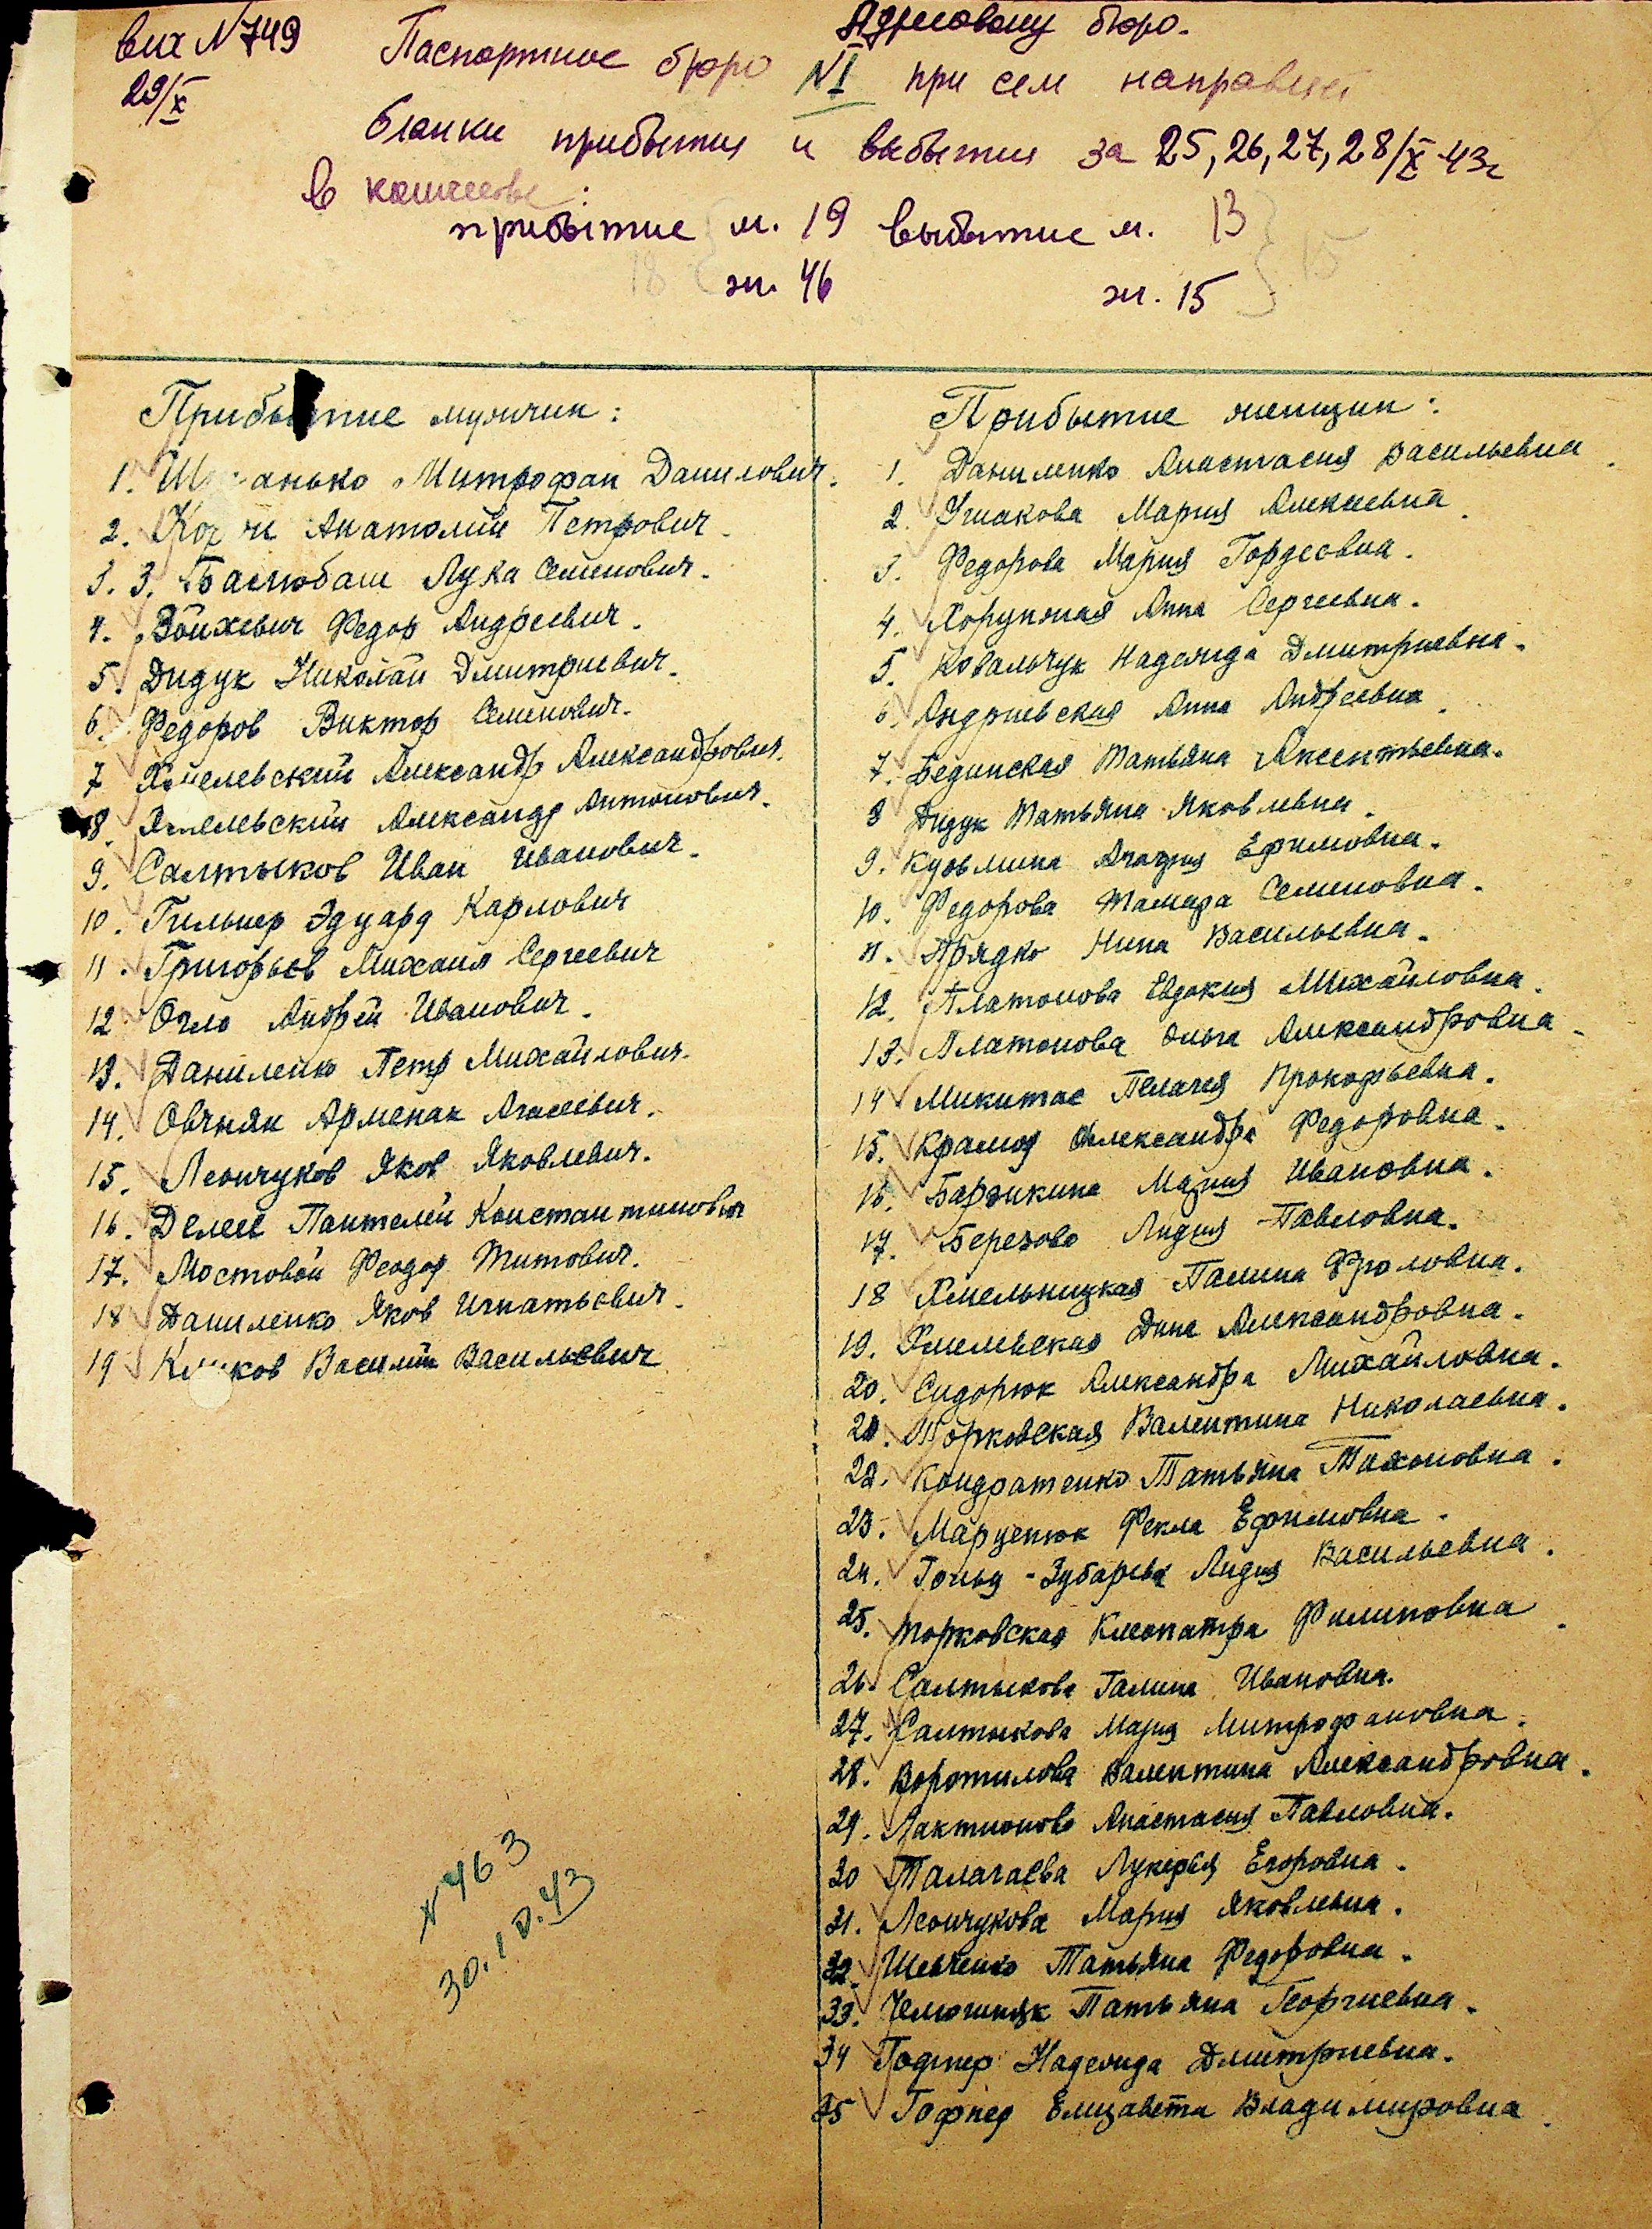 вих N 749
29/X
Адресовому бюро.
Паспортное бюро NI при сем направляет
бланки прибытия и выбытия за 25, 26, 27, 28/X 43г
в количестве:
прибытие м. 19 выбытие м. 13
ж. 46 ж. 15
18 15
Прибытие мужчин:
1. анько Митрофан Данилович.
2. Анатолий Петрович.
3. 3. Баслюбаш Лука Семенович.
4. Войхевич Федор Андреевич.
5. Дидук Николай Дмитриевич.
6. Федоров Виктор Семенович.
7 Хмелевский Александр Александрович.
8. Хмелевский Александр Антонович.
9. Салтыков Иван Иванович.
10. Гильнер Эдуард Карлович
11. Григорьев Михаил Сергеевич
12 Огло Андрей Иванович.
13. Даниленко Петр Михайлович.
14. Овчиян Арменак Агасеевич.
15. Леончуков Яков Яковлевич.
16. Делев Пантелей Константинович
17. Мостовой Феодор Титович.
18 Даниленко Яков Игнатьевич.
19 ков Василий Васильевич
N 463
30.10.43
Прибытие женщин:
1. Даниленко Анастасия Васильевна.
2. Ушакова Мария Алексеевна.
3. Федорова Мария Гордеевна.
4. Хорунжая Анна Сергеевна.
5. Ковальчук Надежда Дмитриевна.
6. Андриевская Анна Андреевна.
7. Бединская Татьяна Аксентьевна.
8 Дидук Татьяна Яковлевна.
9. Кузьмина Агафия Ефимовна.
10. Федорова Тамара Семеновна.
11. Прядко Нина Васильевна.
12. Платонова Евдокия Михайловна.
13. Платонова Ольга Александровна.
14 Микитас Пелагея Прокофьевна.
15. Крамор Александра Федоровна.
16. Барыкина Мария Ивановна.
17. Березова Лидия Павловна.
18 Хмельницкая Галина Фроловна.
19. Хмелевская Дина Александровна.
20. Сидорюк Александра Михайловна.
21. Торковская Валентина Николаевна.
22. Кондратенко Татьяна Тихоновна.
23. Марценюк Фекла Ефимовна.
24. Гольд-Зубарева Лидия Васильевна.
25. Торковская Клеопатра Филиповна.
26. Салтыкова Галина Ивановна.
27. Салтыкова Мария Митрофановна.
28. Воротилова Валентина Александровна.
29. Лактионова Анастасия Павловна.
30 Талагаева Лукерья Егоровна.
31. Леончукова Мария Яковлевна.
32. Шевченко Татьяна Федоровна.
33. Татьяна Георгиевна.
34 Гофнер Надежда Дмитриевна.
35 Гофнер Елизавета Владимировна.